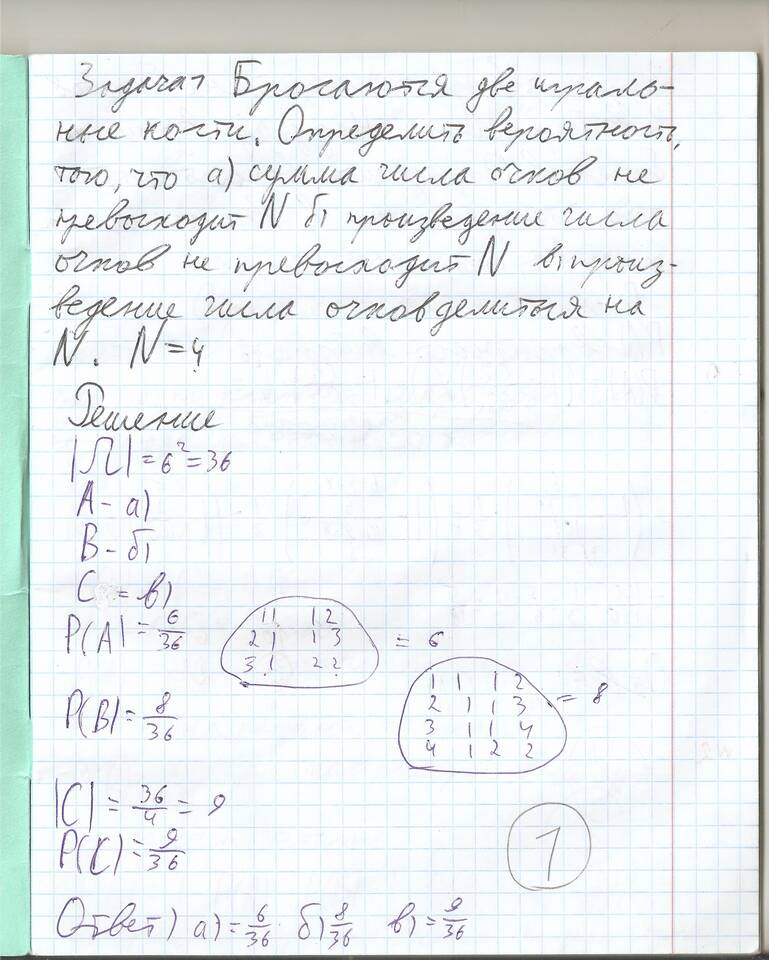 Задача 1 Бросаются две играль-
ные кости. Определить вероятность,
того, что а) сумма числа очков не
превосходит N б) произведение числа
очков не превосходит N в) произ-
ведение числа очков делиться на
N. N=4
Решение
|Ω|=6²=36
A - а)
B - б)
C = в)
P(A)=6/36
11 12
21 13
31 22
= 6
P(B)=8/36
11 12
21 13
31 14
41 22
= 8
|C|=36/4=9
P(C)=9/36
1
Ответ) а)=6/36 б) 8/36 в)=9/36